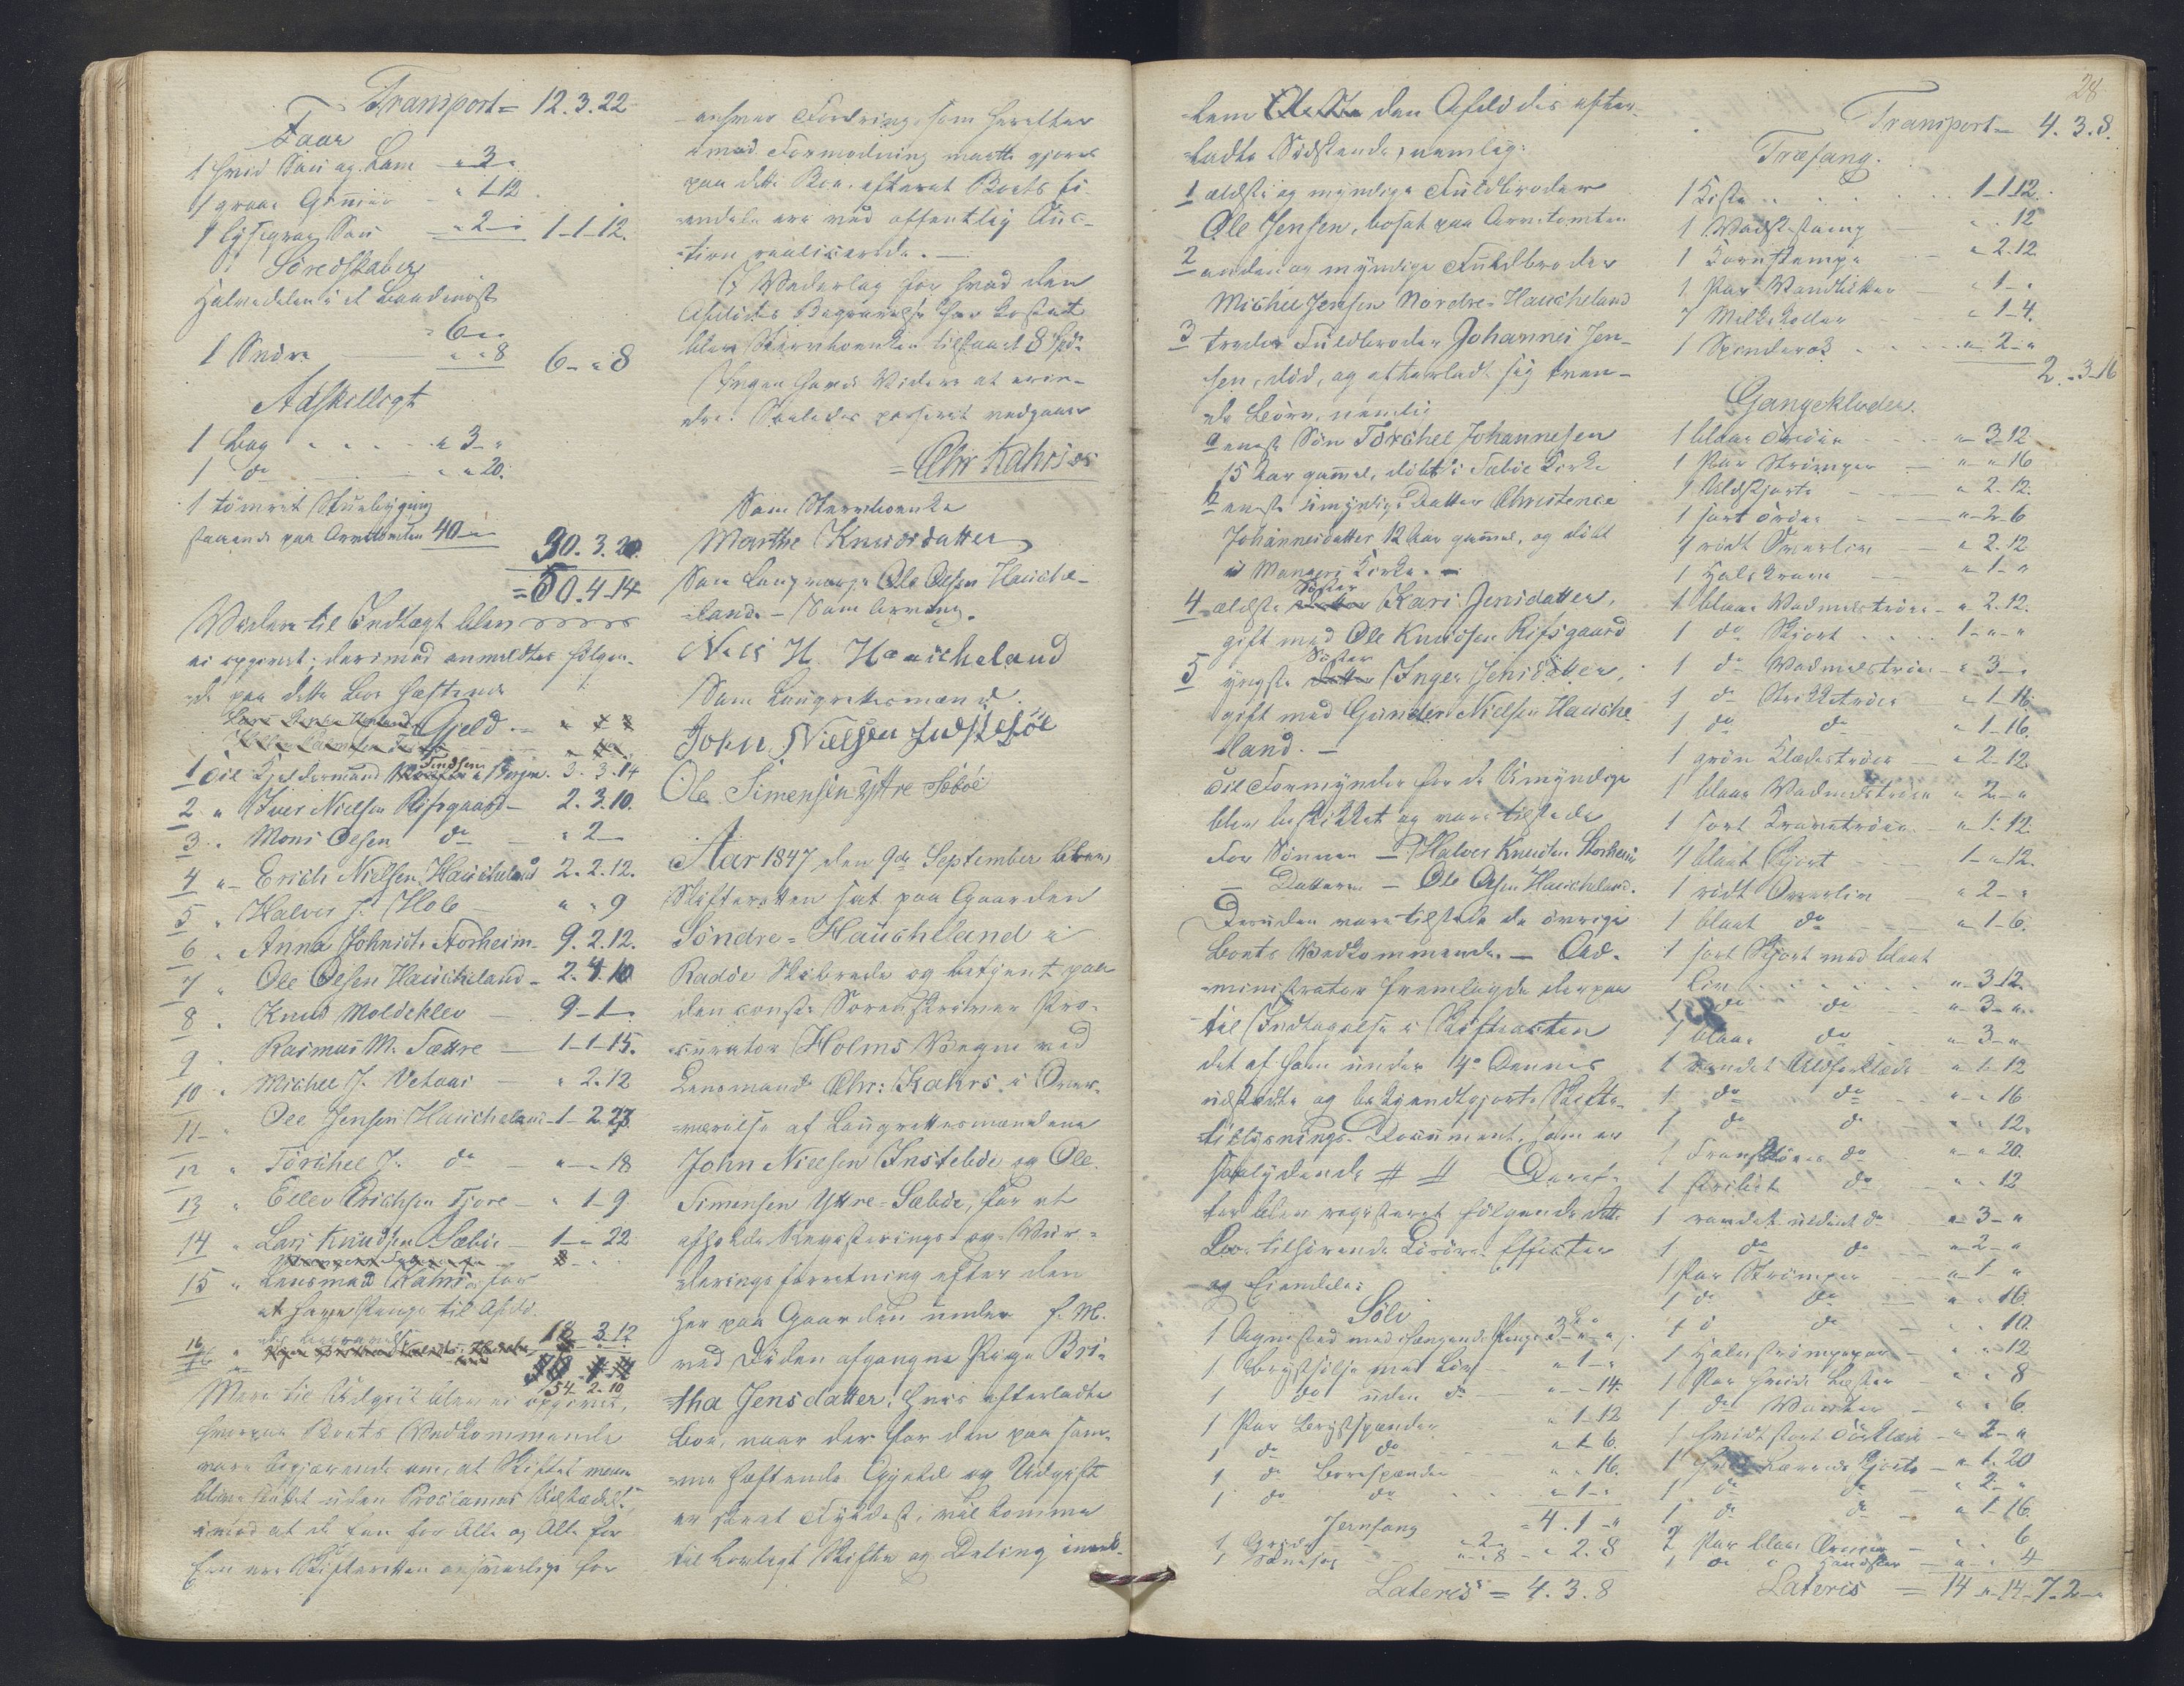 Transport = 12.3.22
Faar
1 hvid Sau og Lam " 3 "
1 graae Gimmer " 1 12
1 lysegraa Sau " 2 " 1-1-12.
Söredskaber
Halvedelen i et Baadnøst
" 6 "
1 Snöre " " 8 6 - " 8
Adskilligt
1 Bog " 3 "
1 do " " 20.
1 tömret Stuebygning
staaende paa Arvetomten 40 " " 30.3.20.
= 50.4.14
Videre til Indtægt blev
ei opgivet; derimod anmeldtes følgen-
de paa dette Boe hæftende
Gjeld.
1 Til Kjøbmand Fendsen i Bergen. 3.3.14
2 " Iver Nielsen Rifsgaard 2.3.10.
3 " Mons Olsen do " 2 "
4 " Erich Nielsen Haucheland 2.2.12.
5 " Halver J. Hole " " 9
6 " Anna Johnsdr Storheim 9.2.12.
7 " Ole Olsen Haucheland 2.4.10
8 " Knud Moldeklev 9-1-
9 " Rasmus M. Sætre 1-1-15.
10 " Michel J. Vetaas " 2.12
11 " Ole Jensen Haucheland 1-2.23
12 " Törchel J. do " " 18
13 " Ellev Erichsen Fjore " 1-9
14 " Lars Knudsen Sæbøe 1 - " 22
15 " Lensmand Kahrs for
at have Penge til Afdö-
des Begravelse 18-3.12
54.2.10
Mere til Udgivt blev ei opgivet,
hvorpaa Boets Vedkommende
vare begjærende om, at Skiftet maae
blive sluttet uden Proclamas Udstædelse
imod at de Een for Alle og Alle for
Een ere Skifteretten ansvarlige for
enhver Fordring, som herefter
imod Formodning maatte gjøres
paa dette Boe, efterat Boets Ei-
endele ere ved offentlig Auc-
tion realiserede. —
I Vederlag for hvad den
Afdödes Begravelse har kostet
blev Stervboenken tilstaaet 8 Spd.
Ingen havde Videre at erin-
dre. Saaledes passeret vedgaaer
Chr Kahrs
Som Stervboenke
Marthe Knudsdatter
Som Laugværge Ole Olsen Hauche-
land. — Som Arving.
Nels H. Haucheland
Som Laugrettesmænd.
John Nielsen Indstebøe
Ole Simensen Yttre Sæbøe
Aar 1847 den 9de September blev
Skifteretten sat paa Gaarden
Söndre-Haucheland i
Radöe Skibrede og betjent paa
den const. Sorenskriver Pro-
curator Holms Vegne ved
Lensmand Chr: Kahrs i Over-
værelse af Laugrettesmændene
John Nielsen Instebøe og Ole
Simensen Yttre-Sæbøe, for at
afholde Registerings- og Vur-
deringsforretning efter den
her paa Gaarden under f. M.
ved Döden afgangne Pige Bri-
tha Jensdatter, hvis efterladte
Boe, naar der for den paa sam-
me hæftende Gjeld og Udgift
er skeet Fyldest, vil komme
til lovligt Skifte og Deling imel-
lem den Afdödes efter-
ladte Södskende, nemlig:
1 ældste og myndige Fuldbroder
Ole Jensen, bosat paa Arvetomten
2 anden og myndige Fuldbroder
Michel Jensen Nordre-Haucheland
3 tredie Fuldbroder Johannes Jen-
sen, död, og efterladt sig tven-
de Börn, nemlig
a eneste Sön Törchel Johannesen
15 Aar gammel, döbt i Sæböe Kirke
b eneste umyndige Datter Christence
Johannesdatter 12 Aar gammel, og döbt
i Mangers Kirke. —
4 ældste Söster Kari Jensdatter,
gift med Ole Knudsen Rifsgaard
5 yngste Söster Inger Jensdatter,
gift med Gunder Nielsen Hauche-
land. —
Til Formynder for de Umyndige
blev beskikket og vare tilstede
For Sönnen — Halver Knudsen Storheim
— Datteren — Ole Olsen Haucheland.
Desuden vare tilstede de övrige
Boets Vedkommende. — Ad-
ministrator fremlagde derpaa
til Indtagelse i Skifteakten
det af ham under 4de Dennes
udstædte og bekjendtgjorte Skifte-
tillysnings-Document, som er
saalydende # # Deref-
ter blev registeret følgende dette
Boe tilhörende Lösöre, Effecter
og Eiendele:
Sölv
1 Agnestad med hængende Penge 3 " "
1 Brystsölje med Löv " 1 "
1 do uden do " " 14.
1 Par Brystspænder " 1-12
1 do do " 1-6.
1 do Boresspænder " " 16.
1 do do " 1 "
= 4.1 "
Jernfang
1 Gryde " 2 "
1 " " 8 - " 2.8
Lateris = 4.3.8
28
Transport = 4.3.8.
Træfang.
1 Kiste 1-1-12.
1 " " 12
1 Kornstampe " 2.12.
1 Par Vandbötter " 1 "
7 Melkekoller " 1-4.
1 Spinderok " 2 "
2. " 3-16
Gangeklæder.
1 blaae Tröie " 3-12
1 Par Strömper " " 16
1 Uldskjorte " 2.12.
1 sort Tröie " 2-6
1 rödt Overliv " 2.12
1 Halskrave " 1 "
1 blaae Vadmelströie " 2.12.
1 do Skjört 1 " "
1 do Vadmelströie " 3 "
1 do Strikketröie " 1-16
1 do do " 1-16.
1 grön Klædeströie " 2-12
1 blaae Vadmelströie " 2 "
1 sort Kraveströie " 1.12.
1 blaat Skjört 1 " 12.
1 rödt Overliv " 2 "
1 blaat do " 1-6.
1 sort Skjört med blaat
Liv " 3-12.
1 do do " 3 "
1 blaae do " 3 "
1 randet Uldforklæde " 1-12
1 do do " " 16
1 do do " " 12.
1 do " " 20.
1 stribet do " " 12
1 randet uldent do " 3 "
1 do do " 2 "
1 Par Strömper " 1 "
1 do do " " 16.
1 do do " " 10.
1 Halvströmpepar " " 12
1 Par hvide Læster " " 8
1 do Vanter " " 6
1 hvidt sort Törklæde " 2 "
1 Lærreds Skjorte " 1-20
1 do do " 2 "
1 do do " 1-16.
2 Par blaae " " 6
1 do " Handsker " " 4
Lateris = 14 " 14 7.2 "